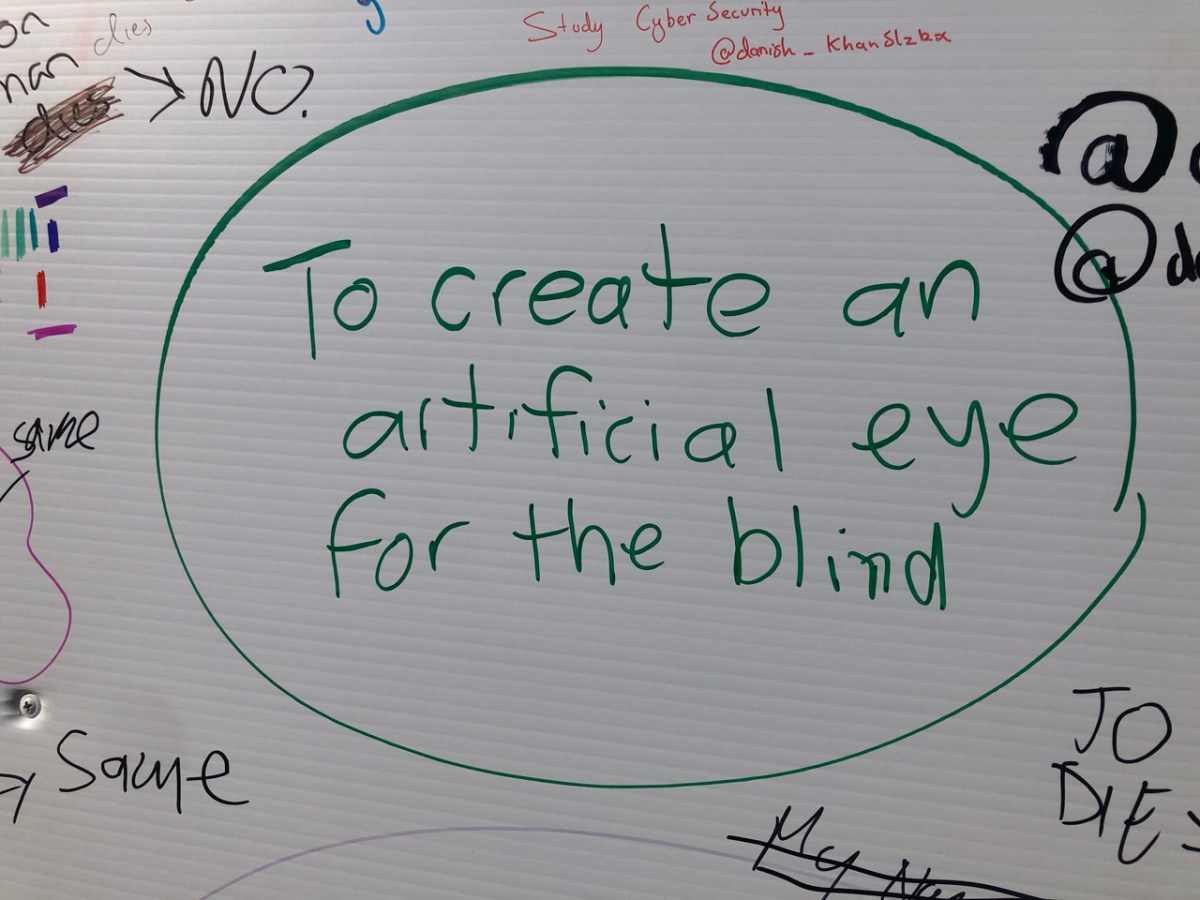 on
man dies
dies > NO.
Study Cyber Security
@danish_Khanslzbx
@
@da
To create an
artificial eye
for the blind
same
Same
TO
DIE
My